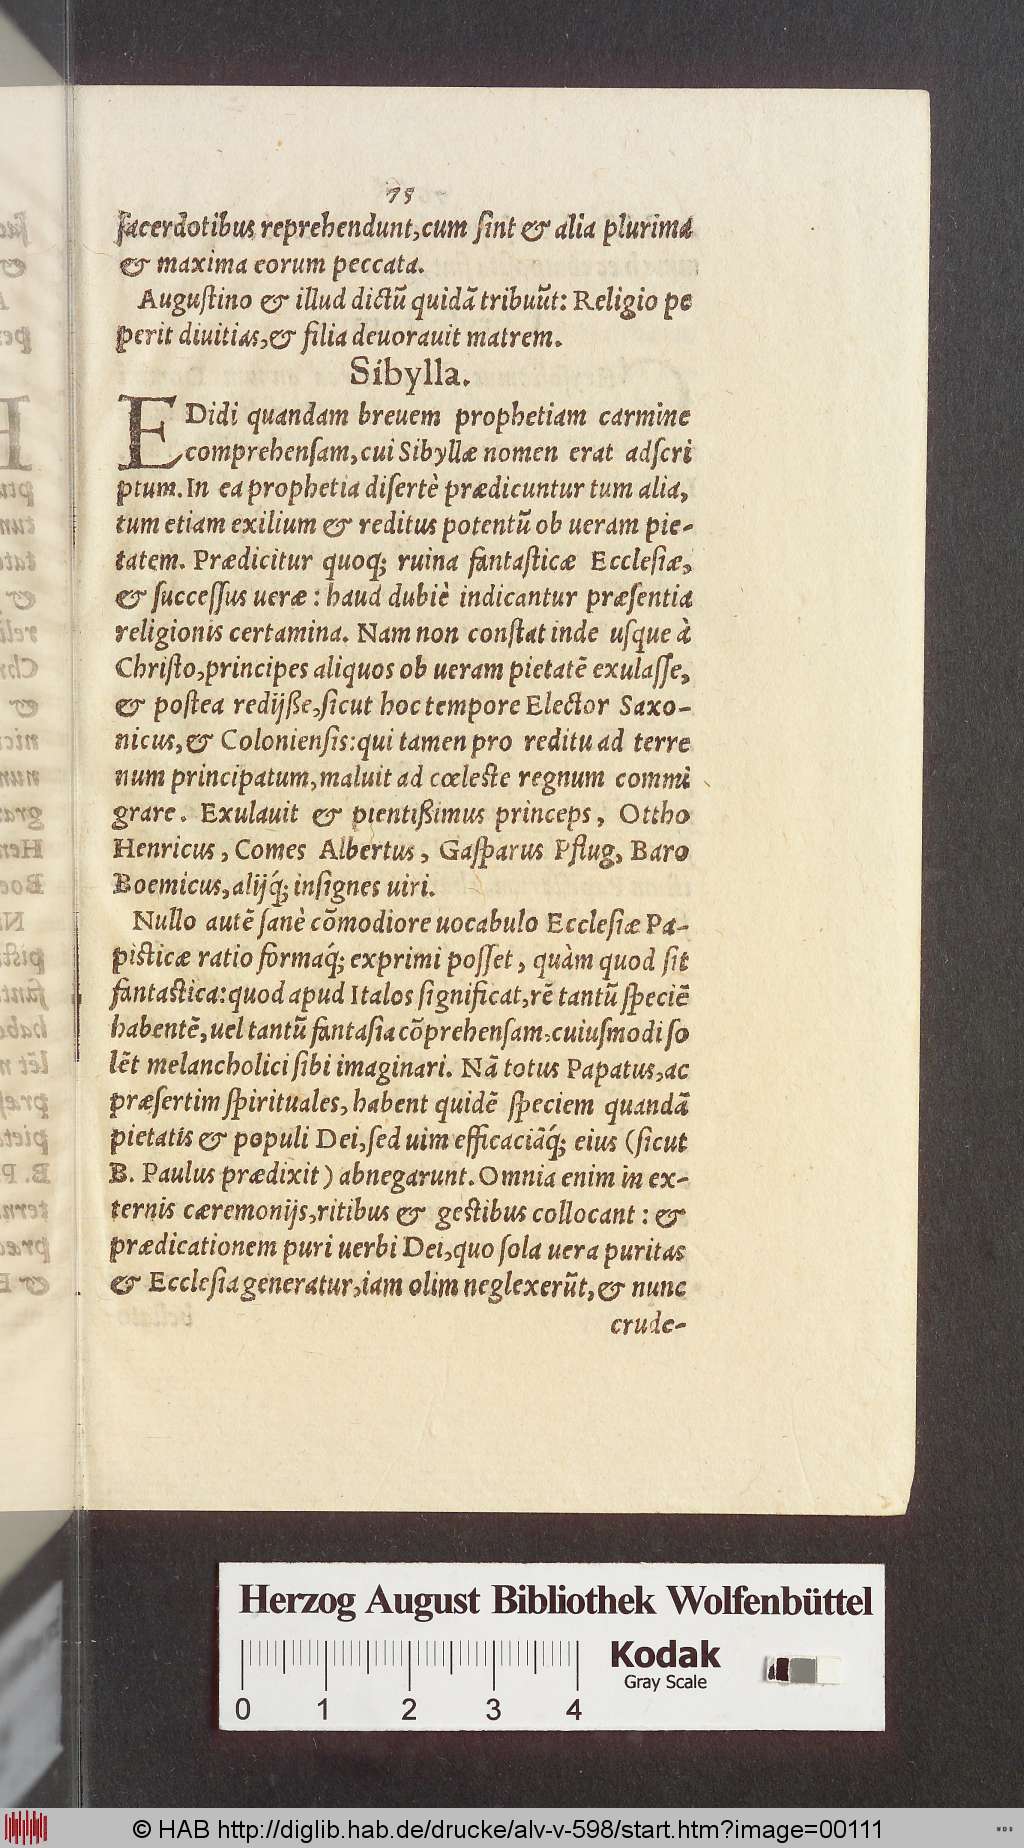 75
ſacerdotibus reprehendunt, cum ſint & alia plurima
& maxima eorum peccata.
Auguſtino & illud dictũ quidã tribuũt: Religio pe
perit diuitias, & filia deuorauit matrem.
Sibylla.
EDidi quandam breuem prophetiam carmine
comprehenſam, cui Sibyllæ nomen erat adſcri
ptum. In ea prophetia diſertè prædicuntur tum alia,
tum etiam exilium & reditus potentũ ob ueram pie-
tatem. Prædicitur quoq; ruina fantaſticæ Eccleſiæ,
& ſucceſſus ueræ: haud dubiè indicantur præſentia
religionis certamina. Nam non conſtat inde uſque à
Chriſto, principes aliquos ob ueram pietatẽ exulaſſe,
& poſtea redijße, ſicut hoc tempore Elector Saxo-
nicus, & Colonienſis: qui tamen pro reditu ad terre
num principatum, maluit ad cœleſte regnum commi
grare. Exulauit & pientißimus princeps, Ottho
Henricus, Comes Albertus, Gaſparus Pflug, Baro
Boemicus, alijq́; inſignes uiri.
Nullo autẽ ſanè cõmodiore uocabulo Eccleſiæ Pa-
piſticæ ratio formaq́; exprimi poſſet, quàm quod ſit
fantaſtica: quod apud Italos ſignificat, rẽ tantũ ſpeciẽ
habentẽ, uel tantũ fantaſia cõprehenſam, cuiuſmodi ſo
lẽt melancholici ſibi imaginari. Nã totus Papatus, ac
præſertim ſpirituales, habent quidẽ ſpeciem quandã
pietatis & populi Dei, ſed uim efficaciãq́; eius (ſicut
B. Paulus prædixit) abnegarunt. Omnia enim in ex-
ternis cæremonijs, ritibus & geſtibus collocant: &
prædicationem puri uerbi Dei, quo ſola uera puritas
& Eccleſia generatur, iam olim neglexerũt, & nunc
crude-
Herzog August Bibliothek Wolfenbüttel
Kodak
Gray Scale
0 1 2 3 4
© HAB http://diglib.hab.de/drucke/alv-v-598/start.htm?image=00111